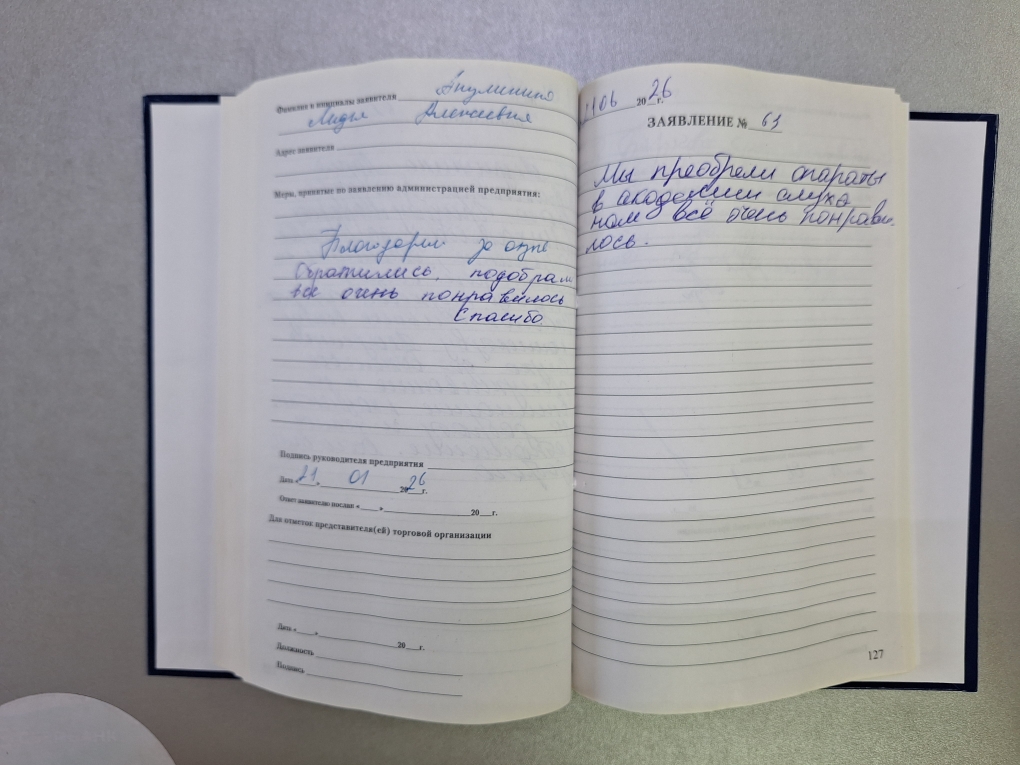 Фамилия и инициалы заявителя Акулинина
Лидия Алексеевна
Адрес заявителя
Меры, принятые по заявлению администрацией предприятия:
Благодарим за
Обратились, подобрали
все очень понравилось
Спасибо
Подпись руководителя предприятия
Дата «21» 01 2026 г.
Ответ заявителю послан « » 20 г.
Для отметок представителя(ей) торговой организации
Дата « » 20 г.
Должность
Подпись
06 2026 г.
ЗАЯВЛЕНИЕ № 61
Мы преобрели апараты
в академии слуха
нам всё очень понрави
лось.
127